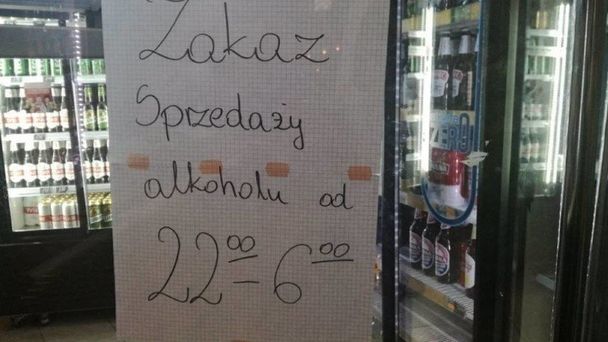 Zakaz
Sprzedaży
alkoholu od
22⁰⁰-6⁰⁰
ZERO